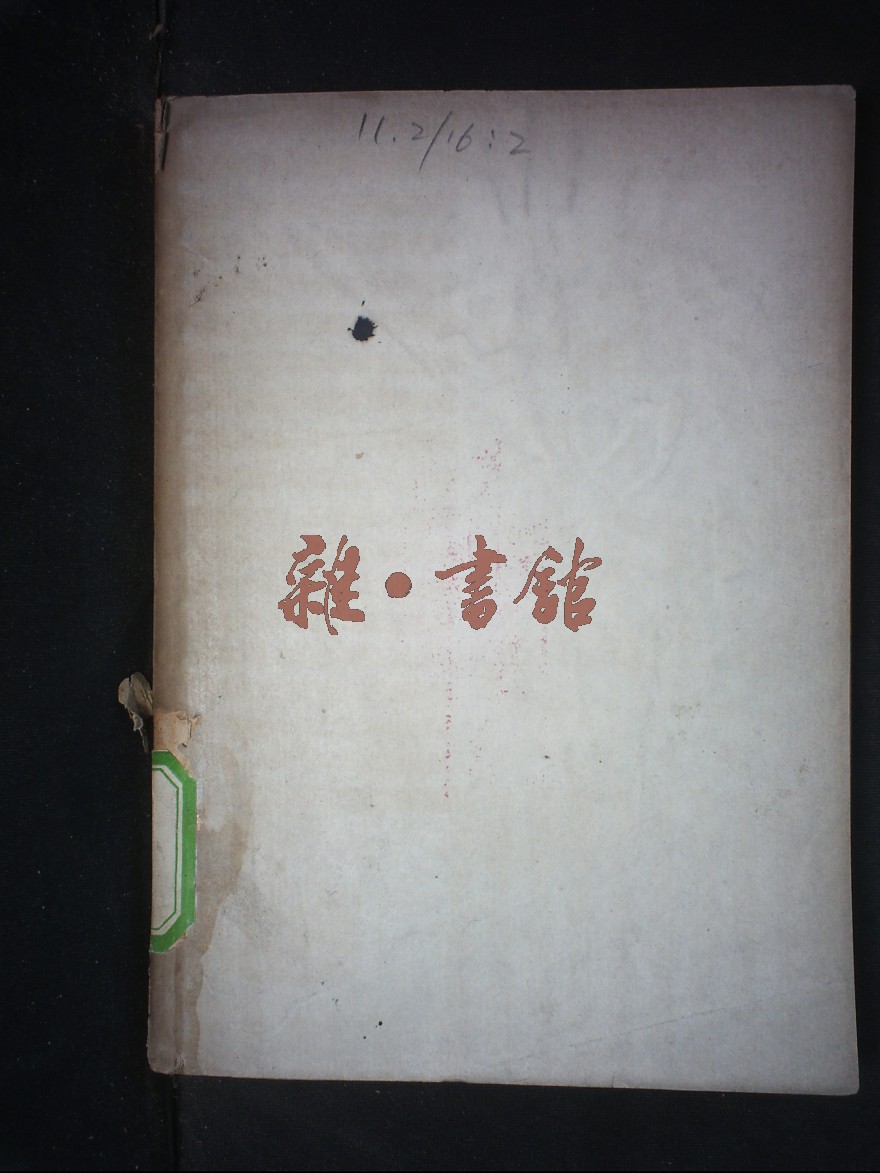 11.2/16:2
雜·書館